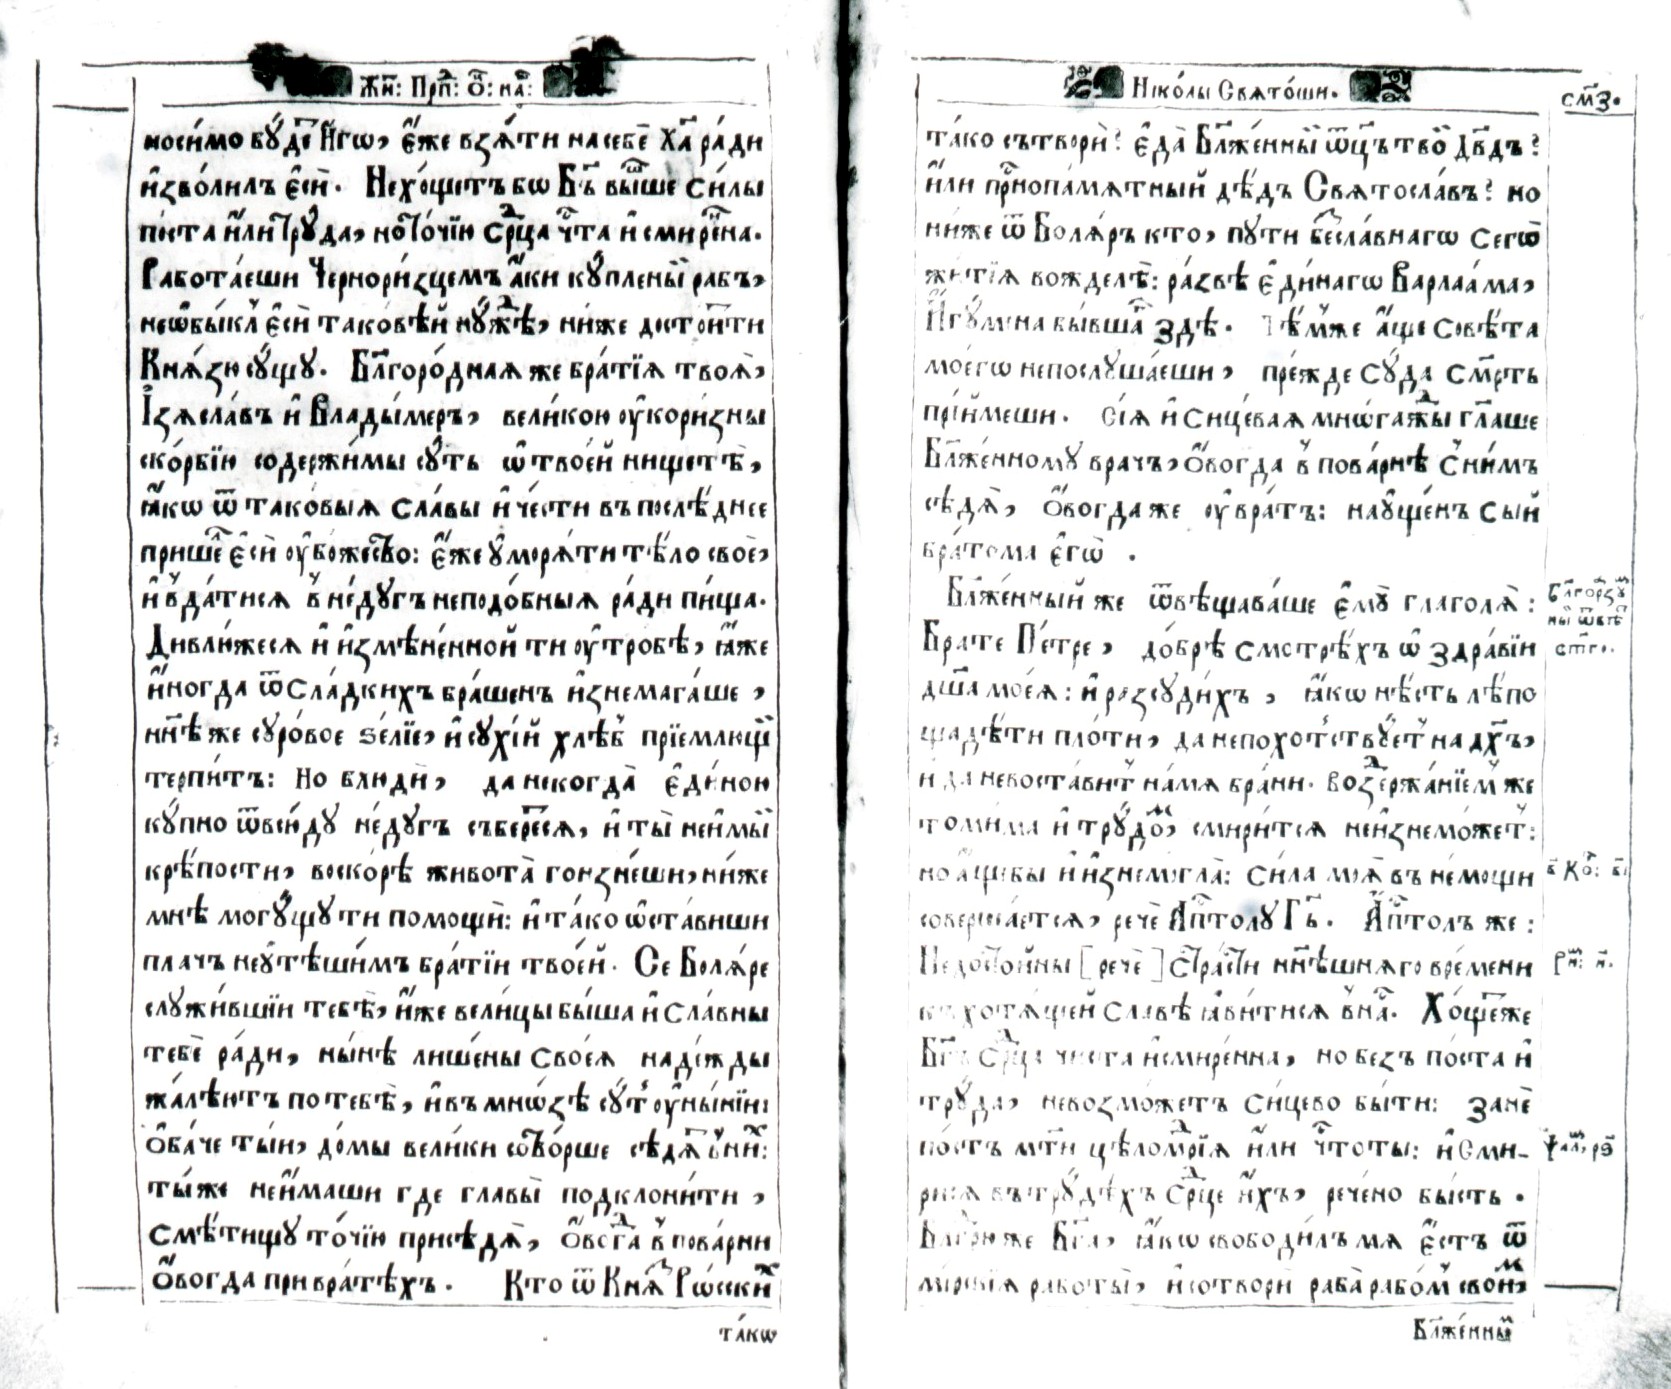 Жи҃: Прп҃: О҃: на҃:
носи́мо бу́де и́гѡ, є́же взѧ́ти на себѐ Хⷭ҇а ра́ди
и҆зво́лилъ є҆сѝ. Не хо́щетъ бѡ Бг҃ъ вы́ше си́лы
по́ста и҆́ли трꙋда̀, но то́чїю срⷣца чⷭ҇та и҆ смире́на.
Рабо́таеши Черноризцемъ а҆́ки кꙋ́пленыи ра́бъ,
неѡ҆бы́клъ є҆сѝ тако́вѣй нꙋ́ждѣ, ни́же досто́ити
Кнѧ́зю сꙋ́щꙋ. Бл҃горо́днаѧ же бра́тїѧ твоѧ̀,
І҆зѧсла́въ и҆ Влады́меръ, вели́кою ѹ҆кори́зны
ско́рбїю содержи́мы сꙋ́ть ѡ҆ твое́й нищетѣ̀,
ꙗ҆́кѡ ѿ тако́выѧ сла́вы и҆ че́сти въ послѣ́днее
прише́лъ є҆сѝ ѹ҆бо́жество: є҆́же ѹ҆морѧ́ти тѣ́ло своѐ,
и҆ вда́тисѧ в̾ недꙋ́гъ неподо́бныѧ ра́ди пи́ща.
Дивлю́жесѧ и҆ и҆змѣне́нной ти ѹ҆тро́бѣ, ꙗ҆́же
и҆ногда̀ ѿ сла́дкихъ бра́шенъ и҆знемага́ше,
нн҃ѣ же сꙋро́вое ѕе́лїе, и҆ сꙋхі́й хлѣ́бъ прїе́млющи
терпи́тъ: Но блюдѝ, да некогда̀ є҆ди́ною
кꙋ́пно ѿвсю́дꙋ недꙋ́гъ събере́сѧ, и҆ ты̀ неи҆мы́й
крѣ́пости, вско́рѣ живота̀ гонзне́ши, ни́же
мнѣ̀ могꙋ́щꙋ ти помощѝ: и҆ та́ко ѡ҆ста́виши
пла́чъ неѹ҆тѣши́мъ бра́тїи твое́й. Се Болѧ́ре
слꙋжи́вшїи тебѣ̀, и҆́же вели́цы бы́ша и҆ сла́вны
тебѐ ра́ди, ны́нѣ лише́ны своеѧ̀ наде́жды
жалѣ́ютъ по тебѣ̀, и҆ въ мнѡ́зѣ сꙋ́тъ ѹ҆ны́нїи:
ѻ҆ба́че ты́и, до́мы вели́ки сотво́рше сѣдѧ́тъ в̾ ни́хъ:
ты́ же неи҆́маши где главы̀ подклони́ти,
смѣ́тищꙋ то́чїю присѣдѧ̀, ѻ҆вогда̀ в̾ пова́рни
ѻ҆вогда̀ при вратѣ́хъ. Кто ѿ Кнѧ́зей Рѡ́сскихъ
та́кѡ
Ніко́лы Свѧто́ши.
см҃з.
та́ко сътворѝ? є҆да̀ Бл҃же́нный ѿц҃ъ тво́й Дв҃дъ?
и҆́ли пр҇нопа́мѧтный дѣ́дъ Свѧтосла́въ? но
ни́же ѿ Болѧ́ръ кто, пꙋтѝ бесла́внагѡ сегѡ̀
жи́тїѧ вожделѣ̀: ра́звѣ є҆ди́нагѡ Варлаа́ма,
И҆гꙋ́мена бы́вша здѣ̀. Тѣ́мже а҆́ще совѣ́та
моегѡ̀ непослꙋ́шаеши, пре́жде сꙋда̀ сме́рть
прїи́меши. Сїѧ̀ и҆ сицева́ѧ мно́гажды гл҃аше
Бл҃же́нномꙋ врачъ, ѻ҆вогда̀ в̾ пова́рнѣ с̾ни́мъ
сѣдѧ̀, ѻ҆вогда́ же ѹ҆ вра́тъ: наѹ҆ще́нъ сый
бра́тома є҆гѡ̀.
Бл҃же́нный же ѿвѣщава́ше є҆мꙋ̀ глаго́лѧ:
Бра́те Пе́тре, до́брѣ смотрѣ́хъ ѡ҆ здра́вїи
дш҃а моеѧ̀: и҆ разсꙋди́хъ, ꙗ҆́кѡ нѣ́сть лѣ́по
щадѣ́ти пло́ти, да непохо́тствꙋетъ на дх҃ъ,
и҆ да невоста́витъ на мѧ̀ бра́ни. Воздержа́нїемъ же
томи́ма и҆ трꙋдо́мъ, смири́тсѧ неи҆знемо́жетъ:
но а҆́ще бы и҆ и҆знемогла̀: Си́ла моѧ̀ въ не́мощи
соверша́етсѧ, речѐ Апⷭ҇толꙋ Гдⷭ҇ь. Апⷭ҇толъ же:
Недосто́йны [речѐ] стра́сти нн҃ѣшнѧго вре́мени
къ хотѧ́щей сла́вѣ ꙗ҆ви́тисѧ в̾ на́съ. Хо́щетже
Бг҃ъ срⷣца чи́ста и҆ смире́нна, но безъ по́ста и҆
трꙋда̀, невозмо́жетъ си́цево бы́ти: занѐ
по́стъ мт҃и цѣломꙋ́дрїѧ и҆́ли чⷭ҇тоты: и҆ Сми-
рисѧ въ трꙋдѣ́хъ срⷣце и҆́хъ, рече́но бы́сть.
Бл҃годарю́ же Бг҃а, ꙗ҆́кѡ свободи́лъ мѧ є҆́стъ ѿ
мирскі́ѧ рабо́ты, и҆ сотворѝ раба̀ рабо́мъ свои́мъ,
Бл҃горазꙋ́мный ѿвѣ́тъ
ст҃го.
в҃ Ко҃: в҃і
Ри҃м: и҃.
Ѱал, рѕ҃
Бл҃же́нный